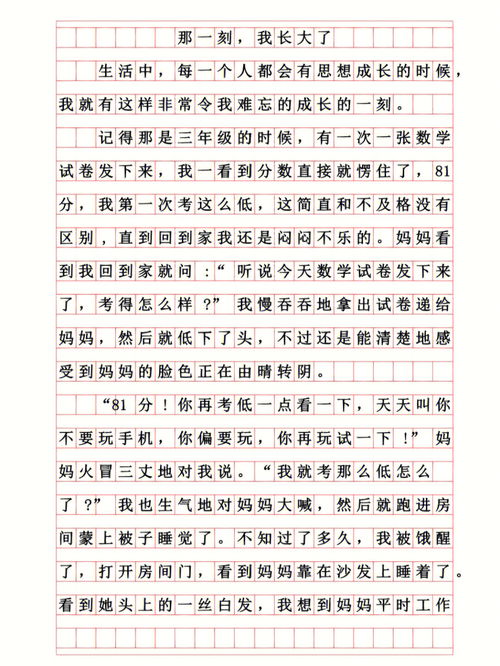 那一刻，我长大了
生活中，每一个人都会有思想成长的时候，
我就有这样非常令我难忘的成长的一刻。
记得那是三年级的时候，有一次一张数学
试卷发下来，我一看到分数直接就愣住了，81
分，我第一次考这么低，这简直和不及格没有
区别，直到回到家我还是闷闷不乐的。妈妈看
到我回到家就问：“听说今天数学试卷发下来
了，考得怎么样？”我慢吞吞地拿出试卷递给
妈妈，然后就低下了头，不过还是能清楚地感
受到妈妈的脸色正在由晴转阴。
“81分！你再考低一点看一下，天天叫你
不要玩手机，你偏要玩，你再玩试一下！”妈
妈火冒三丈地对我说。“我就考那么低怎么
了？”我也生气地对妈妈大喊，然后就跑进房
间蒙上被子睡觉了。不知过了多久，我被饿醒
了，打开房间门，看到妈妈靠在沙发上睡着了。
看到她头上的一丝白发，我想到妈妈平时工作